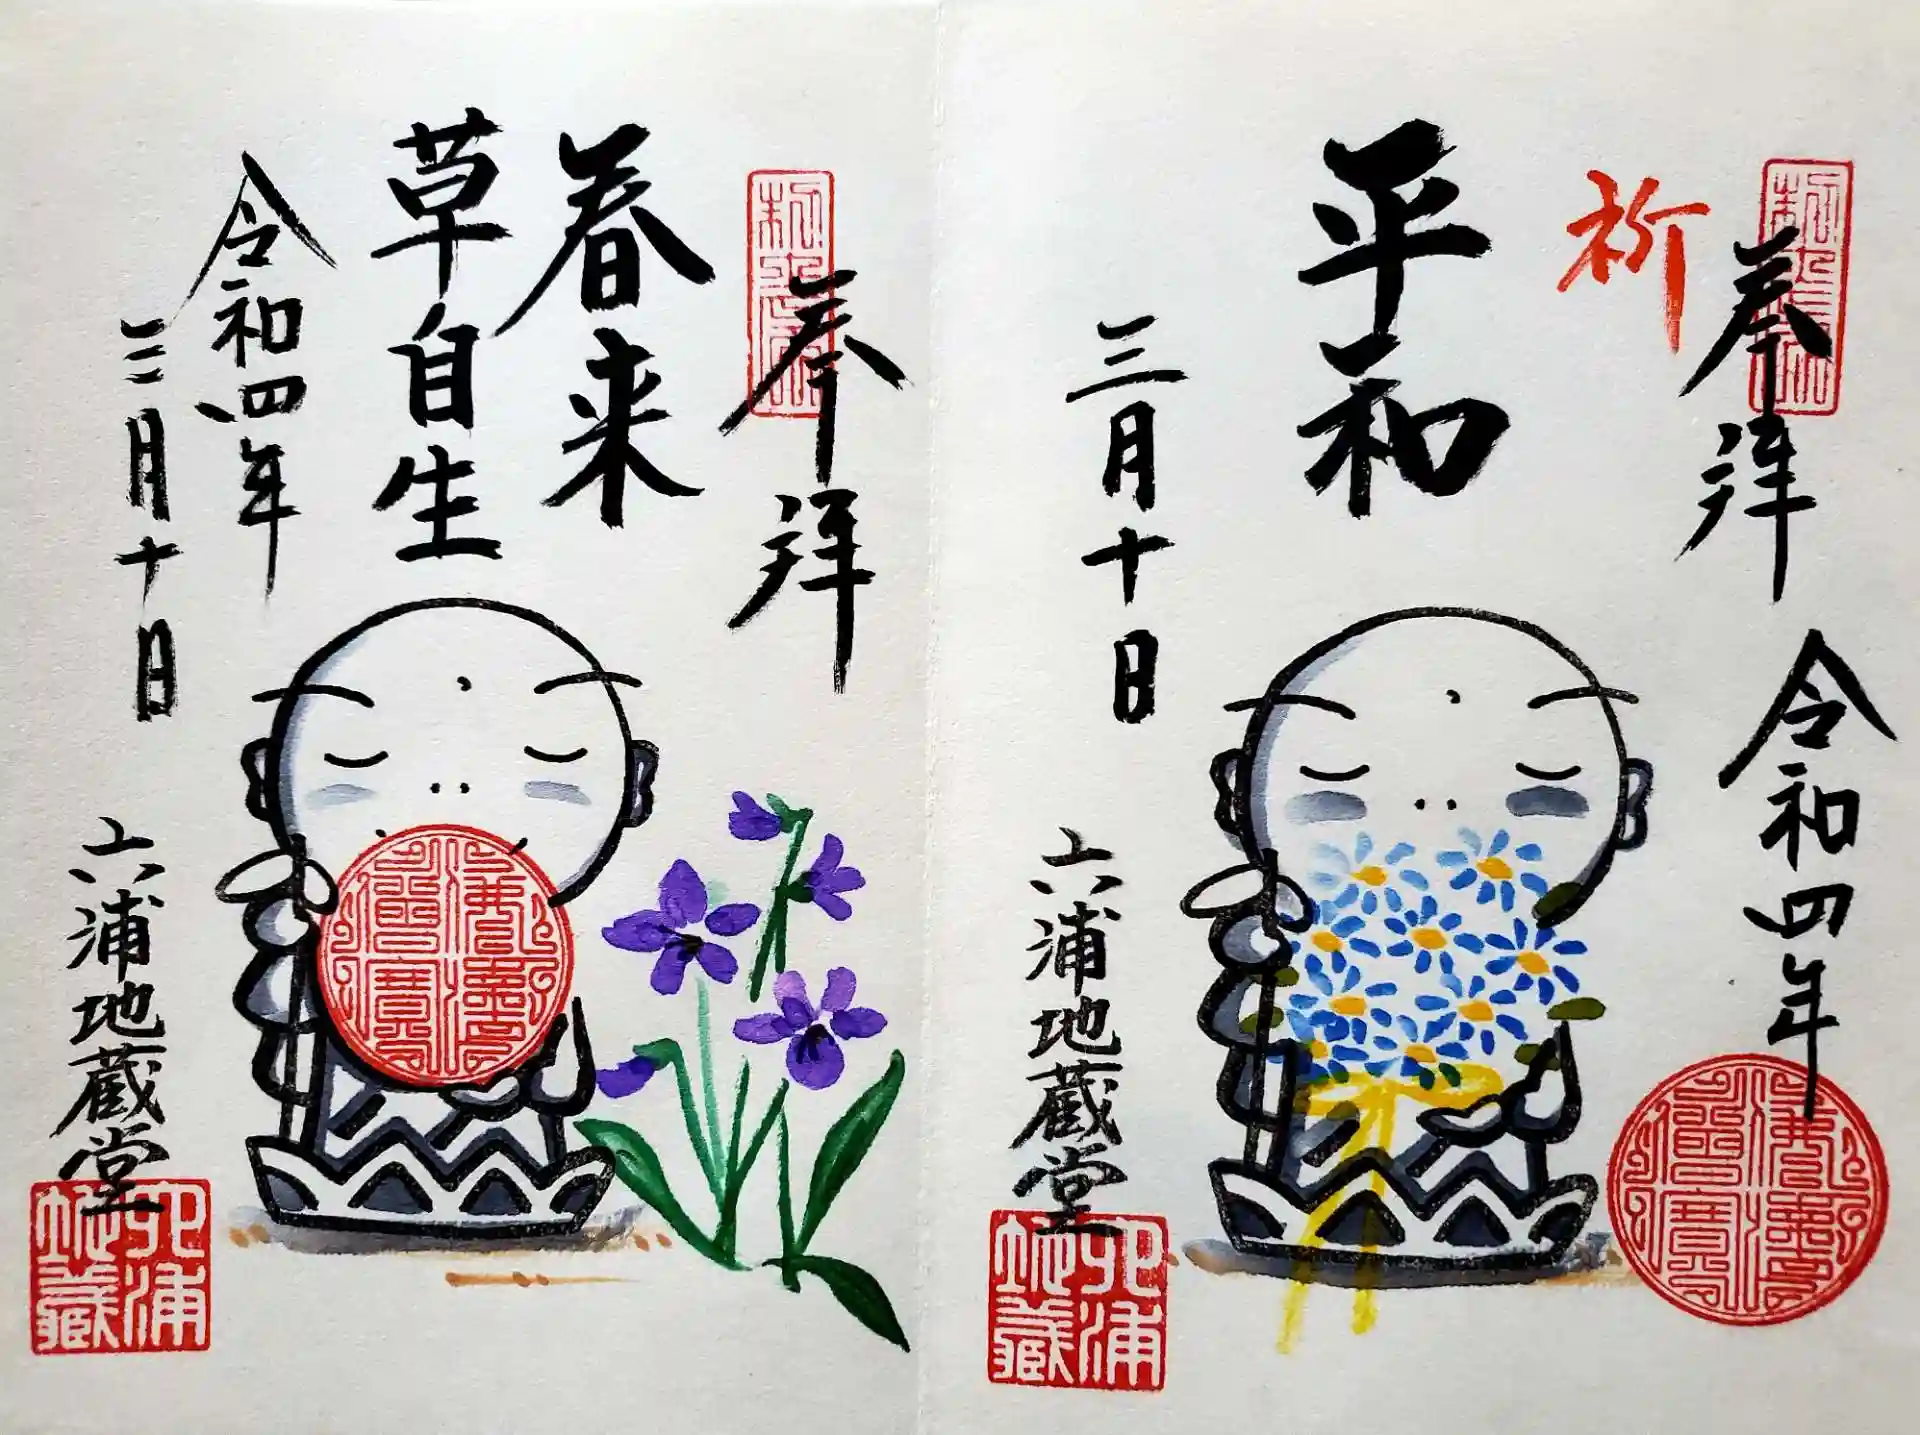 奉拝
令和四年
祈
平和
三月十日
六浦地蔵堂
六浦
地蔵
奉拝
春来
草自生
令和四年
三月十日
六浦地蔵堂
六浦
地蔵